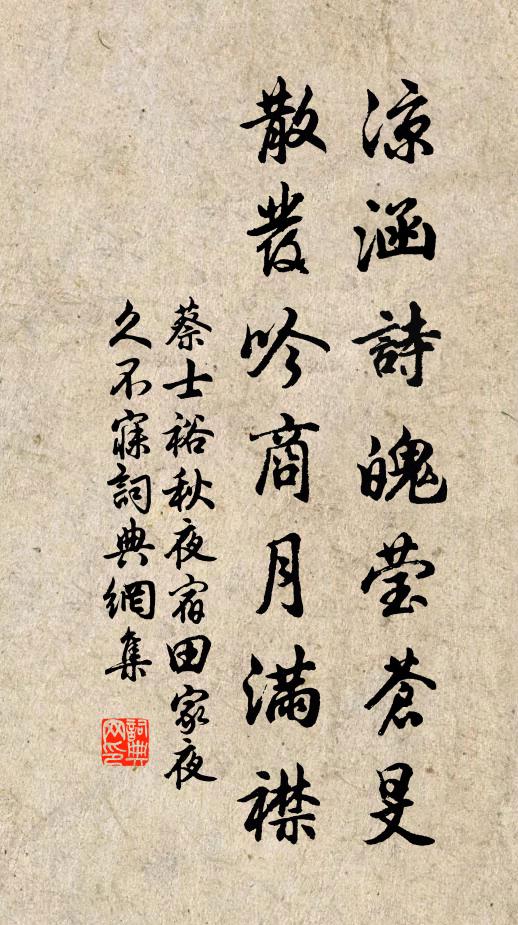 凉涵詩魄莹蒼旻
散發吟商月滿襟
蔡士裕秋夜宿田家夜
久不寐詞典網集
詞典网印